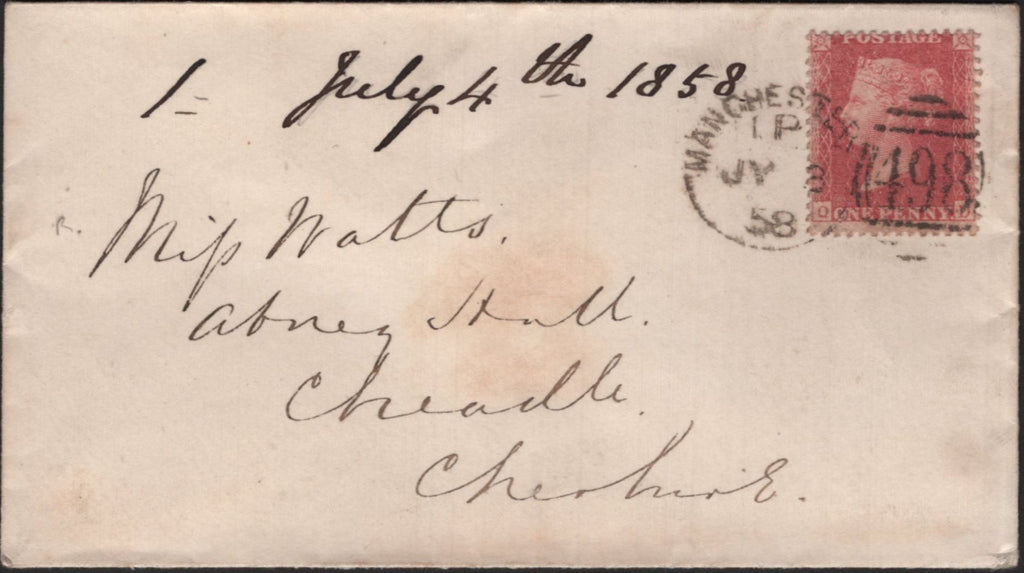 1 - July 4th 1858
MANCHESTER
1P
JY
58
498
POSTAGE
ONE PENNY
Miss Watts.
Abney Hall.
Cheadle.
Cheshire.